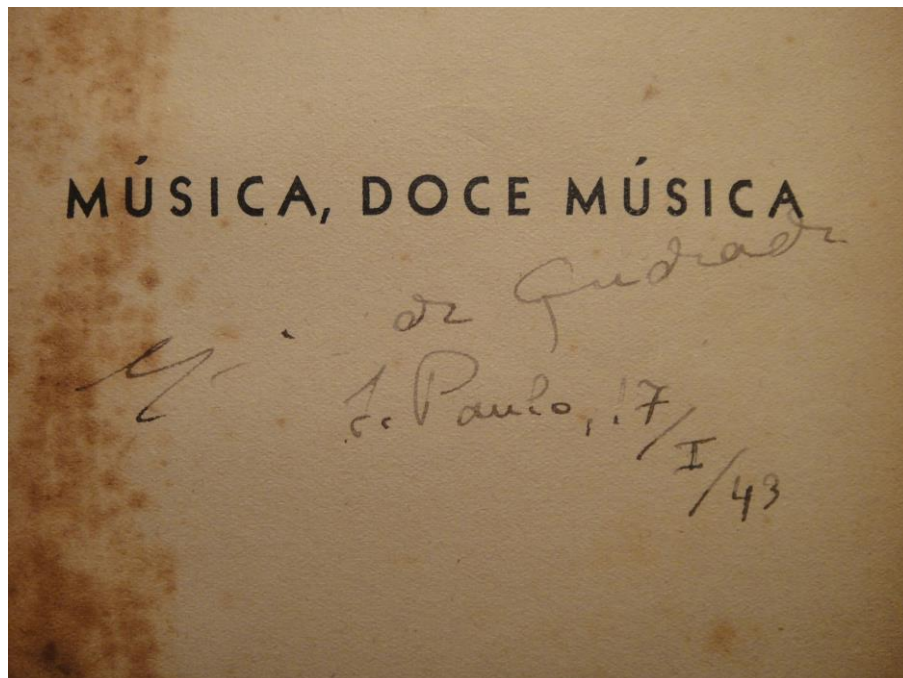 MÚSICA, DOCE MÚSICA
de Andrade
S. Paulo, 17/I/43